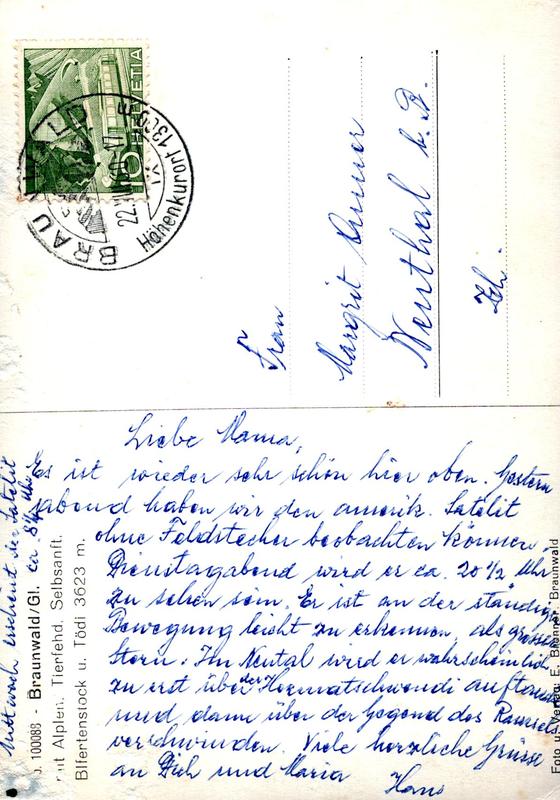 HELVETIA
10
BRAUNWALD
22.VIII.60-17
Höhenkurort 1300 m
Frau
Margrit
Neuthal b. B.
Zch.
Liebe Mama,
Es ist wieder sehr schön hier oben. Gestern
abend haben wir den amerik. Satelit
ohne Feldstecher beobachten können.
Dienstagabend wird er ca. 20 1/2 Uhr
zu sehen sein. Er ist an der ständigen
Bewegung leicht zu erkennen, als grosser
Stern. Im Neutal wird er wahrscheinlich
zu erst über der auftauchen
und dann über der Gegend des
verschwinden. Viele herzliche Grüsse
an Dich und Maria
Hans
Mittwoch erscheint der Satelit
ca 8 Uhr
J. 100088 - Braunwald/Gl.
mit Alplen, Tierfehd, Selbsanft,
Bifertenstock u. Tödi 3623 m.
Foto u. Verlag: E. Braunwald